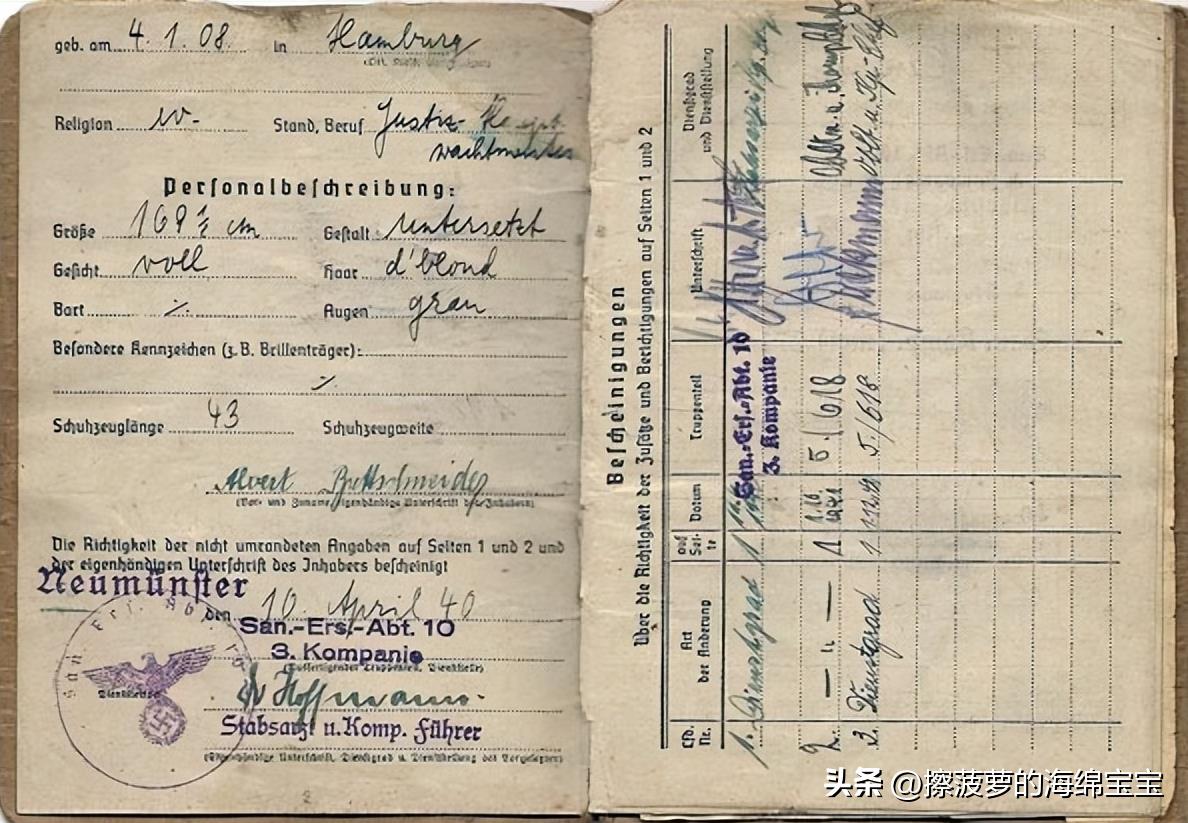 geb. am 4. 1. 08. in Hamburg
Religion ev. Stand, Beruf Justiz-Haupt-
wachtmeister
Personalbeschreibung:
Größe 169 ½ cm Gestalt untersetzt
Gesicht voll Haar d'blond
Bart ⁒ Augen grau
Besondere Kennzeichen (z.B. Brillenträger):
⁒
Schuhzeuglänge 43 Schuhzeugweite
(Vor- und Zuname, eigenhändige Unterschrift des Inhabers)
Die Richtigkeit der nicht umrandeten Angaben auf Seiten 1 und 2 und
der eigenhändigen Unterschrift des Inhabers bescheinigt
Neumünster
den 10. April 40
San.-Ers.-Abt. 10
3. Kompanie
(Ausfertigender Truppenteil, Dienststelle)
Dienststempel
Dr Hoffmann
Stabsarzt u. Komp. Führer
(Eigenhändige Unterschrift, Dienstgrad u. Dienststellung des Vorgesetzten)
2
Bescheinigungen
über die Richtigkeit der Zusätze und Berichtigungen auf Seiten 1 und 2
Lfd. Nr. Art der Änderung auf Seite Datum Truppenteil Unterschrift Dienstgrad und Dienststellung
1. Dienstgrad 1 San.-Ers.-Abt. 10
3. Kompanie
2. — " — 1 1.10. 1941 5./618
3. Dienstgrad 1 5/618
头条 @擦菠萝的海绵宝宝